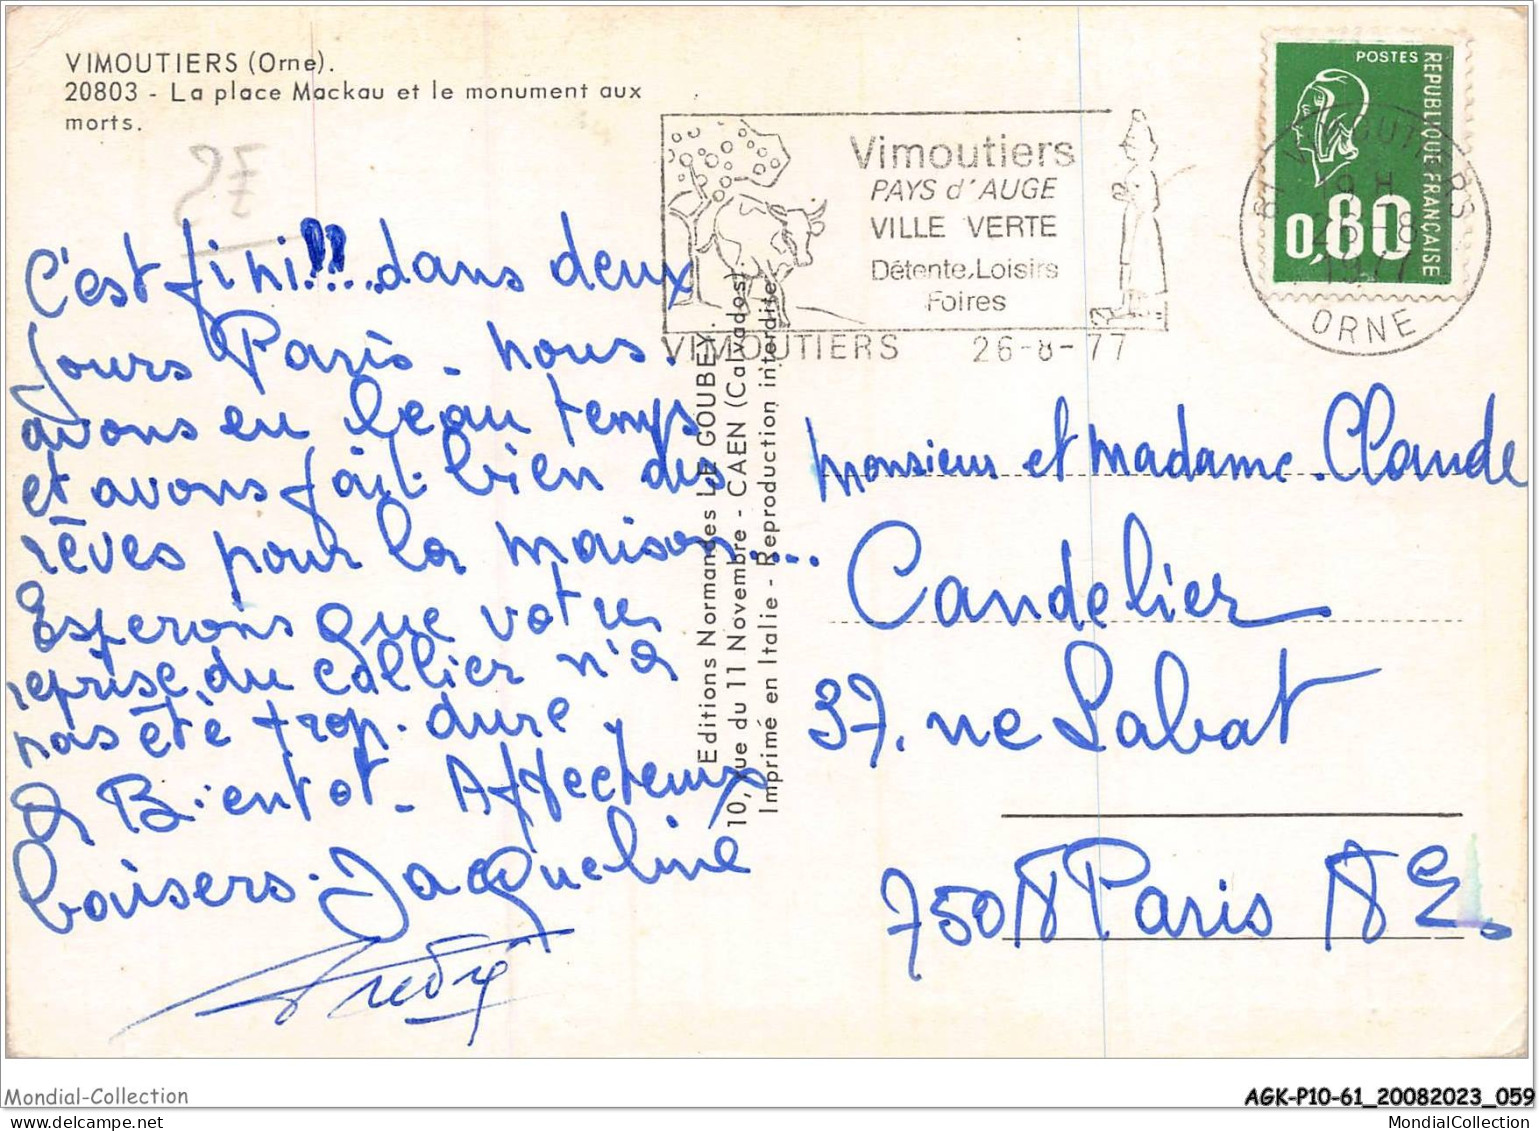 VIMOUTIERS (Orne).
20803 - La place Mackau et le monument aux
morts.
C'est fini!!....dans deux
jours Paris - nous
avons eu beau temps
et avons fait bien des
rêves pour la maison....
Esperons que votre
reprise du collier n'a
pas été trop dure,
a Bientot - Affectueux
baisers. Jacqueline
Vimoutiers
PAYS d'AUGE
VILLE VERTE
Détente.Loisirs
Foires
VIMOUTIERS 26-8-77
POSTES
REPUBLIQUE FRANÇAISE
0,80
61 VIMOUTIERS
19 H
26-8
1977
ORNE
Editions Normandes LE GOUBEY.
10, rue du 11 Novembre - CAEN (Calvados).
Imprimé en Italie - Reproduction interdite
Monsieur et Madame Claude
Candelier
37. rue Labat
75018 Paris 18 E.
Mondial-Collection
AGK-P10-61_20082023_059
MondialCollection